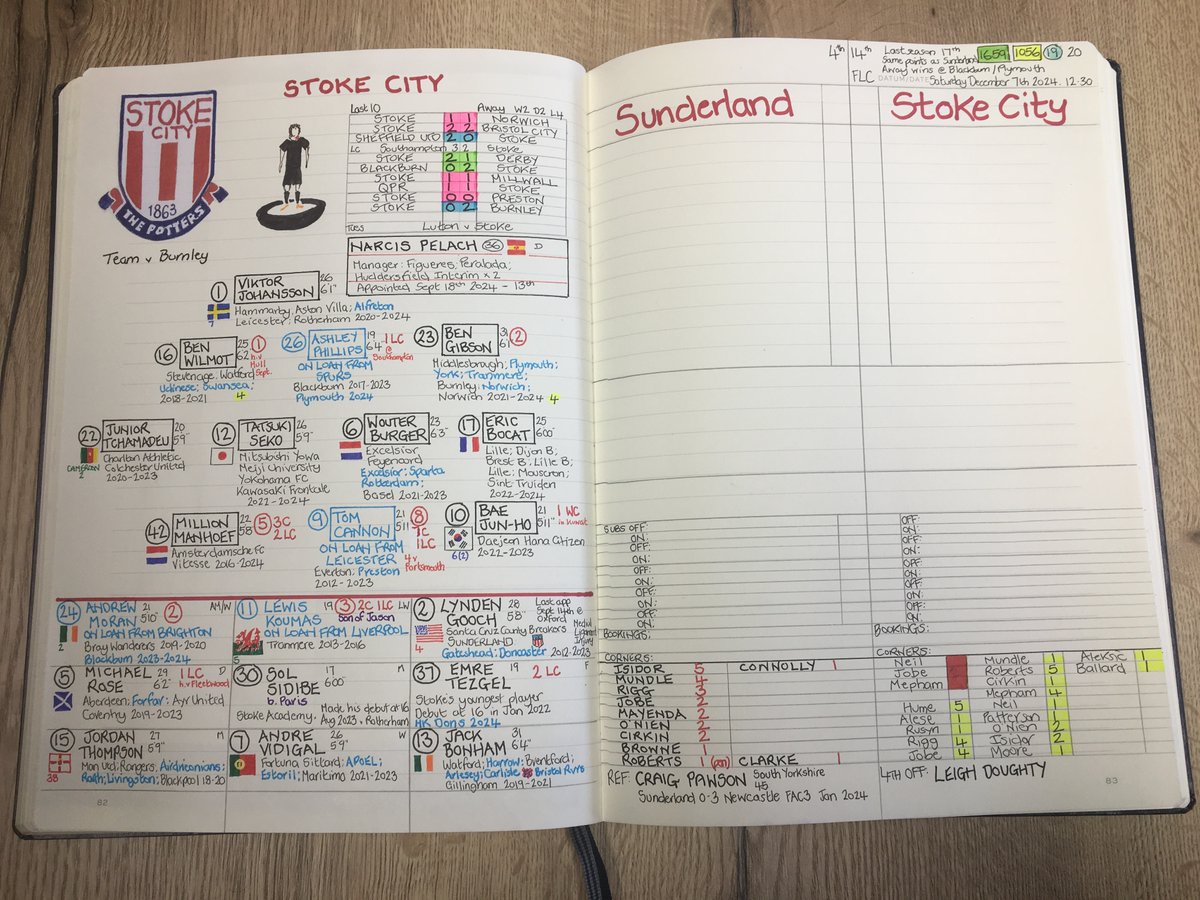 STOKE CITY
STOKE
CITY
1863
THE POTTERS
Last 10 Away W2 D2 L4
STOKE 1 1 NORWICH
STOKE 2 2 BRISTOL CITY
SHEFFIELD UTD 2 0 STOKE
LC Southampton 3 2 Stoke
STOKE 2 1 DERBY
BLACKBURN 0 2 STOKE
STOKE 1 1 MILLWALL
QPR 1 1 STOKE
STOKE 0 0 PRESTON
STOKE 0 2 BURNLEY
TUES Luton v Stoke
Team v Burnley
NARCIS PELACH 36 D
Manager: Figueres, Peralada;
Huddersfield Interim x 2
Appointed Sept 18th 2024 - 13th
1 VIKTOR JOHANSSON 26 6'1"
7
Hammarby, Aston Villa; Alfreton
Leicester; Rotherham 2020-2024
16 BEN WILMOT 25 6'2 1 h.v Hull Sept.
Stevenage, Watford
Udinese; Swansea;
2018-2021 4
26 ASHLEY PHILLIPS 19 6'4 1LC @ Southampton
ON LOAN FROM
SPURS
Blackburn 2017-2023
Plymouth 2024
23 BEN GIBSON 31 6'1 2
Middlesbrough; Plymouth;
York; Tranmere;
Burnley; Norwich;
Norwich 2021-2024 4
22 JUNIOR TCHAMADEU 20 5'9"
CAMEROON
2
Charlton Athletic
Colchester United
2020-2023
12 TATSUKI SEKO 26 5'9"
Mitsubishi Yowa
Meiji University
Yokohama FC
Kawasaki Frontale
2022-2024
6 WOUTER BURGER 23 6'3"
Excelsior
Feyenoord
Excelsior; Sparta
Rotterdam;
Basel 2021-2023
17 ERIC BOCAT 25 6'00"
Lille; Dijon B;
Brest B; Lille B;
Lille; Mouscron;
Sint Truiden
2022-2024
42 MILLION MANHOEF 22 5'8 5 3C 2LC
Amsterdamsche FC
Vitesse 2016-2024
9 TOM CANNON 21 5'11 8 1C 1LC
4 v Portsmouth
ON LOAN FROM
LEICESTER
Everton; Preston
2012-2023
10 BAE JUN-HO 21 5'11" 1 WC in Kuwait
6(2)
Daejeon Hana Citizen
2022-2023
24 ANDREW MORAN 21 5'10" 2 AM/W
2
ON LOAN FROM BRIGHTON
Bray Wanderers 2019-2020
Blackburn 2023-2024
11 LEWIS KOUMAS 19 3 2C 1LC LW
Son of Jason
5
ON LOAN FROM LIVERPOOL
Tranmere 2013-2016
2 LYNDEN GOOCH 28 5'8" Last app Sept 14th @ Oxford
Medial Ligament Injury
4
Santa Cruz County Breakers
SUNDERLAND
Gateshead; Doncaster 2012-2023
5 MICHAEL ROSE 29 6'2" 1LC D
h.v Fleetwood
Aberdeen; Forfar; Ayr United
Coventry 2019-2023
30 SOL SIDIBE 17 6'00" M
b. Paris
Stoke Academy. Made his debut at 16
Aug 2023 v Rotherham
37 EMRE TEZGEL 19 2 LC F
Stoke's youngest player
Debut at 16 in Jan 2022
MK Dons 2024
15 JORDAN THOMPSON 27 5'9" M
38
Man Utd; Rangers, Airdrieonians;
Raith; Livingston; Blackpool 18-20
7 ANDRE VIDIGAL 26 5'9" W
Fortuna Sittard; APOEL;
Estoril; Maritimo 2021-2023
13 JACK BONHAM 31 6'4"
Watford; Harrow; Brentford;
Arlesey; Carlisle Bristol Rvrs
Gillingham 2019-2021
82
4th 14th Last season 17th 1659 1056 19 20
Same points as Sunderland
Away wins @ Blackburn/Plymouth
FLC DATUM/DATE Saturday December 7th 2024. 12.30
Sunderland Stoke City
SUBS OFF: OFF:
ON: ON:
OFF: OFF:
ON: ON:
OFF: OFF:
ON: ON:
OFF: OFF:
ON: ON:
OFF: OFF:
ON: ON:
BOOKINGS: BOOKINGS:
CORNERS: CORNERS:
ISIDOR 5 CONNOLLY 1 Neil Mundle 1 Aleksic 1
MUNDLE 4 Jobe Roberts 5 Ballard 1
RIGG 3 Mepham Cirkin 1
JOBE 2 Mepham 4
MAYENDA 2 Hume 5 Neil 1
O'NIEN 2 Alese 1 Patterson 1
CIRKIN 2 Rusyn 1 O'Nien 2
BROWNE 1 Rigg 4 Isidor 2
ROBERTS 1 (pen) CLARKE 1 Jobe 4 Moore 1
REF: CRAIG PAWSON South Yorkshire 4TH OFF: LEIGH DOUGHTY
45
Sunderland 0-3 Newcastle FAC3 Jan 2024
83